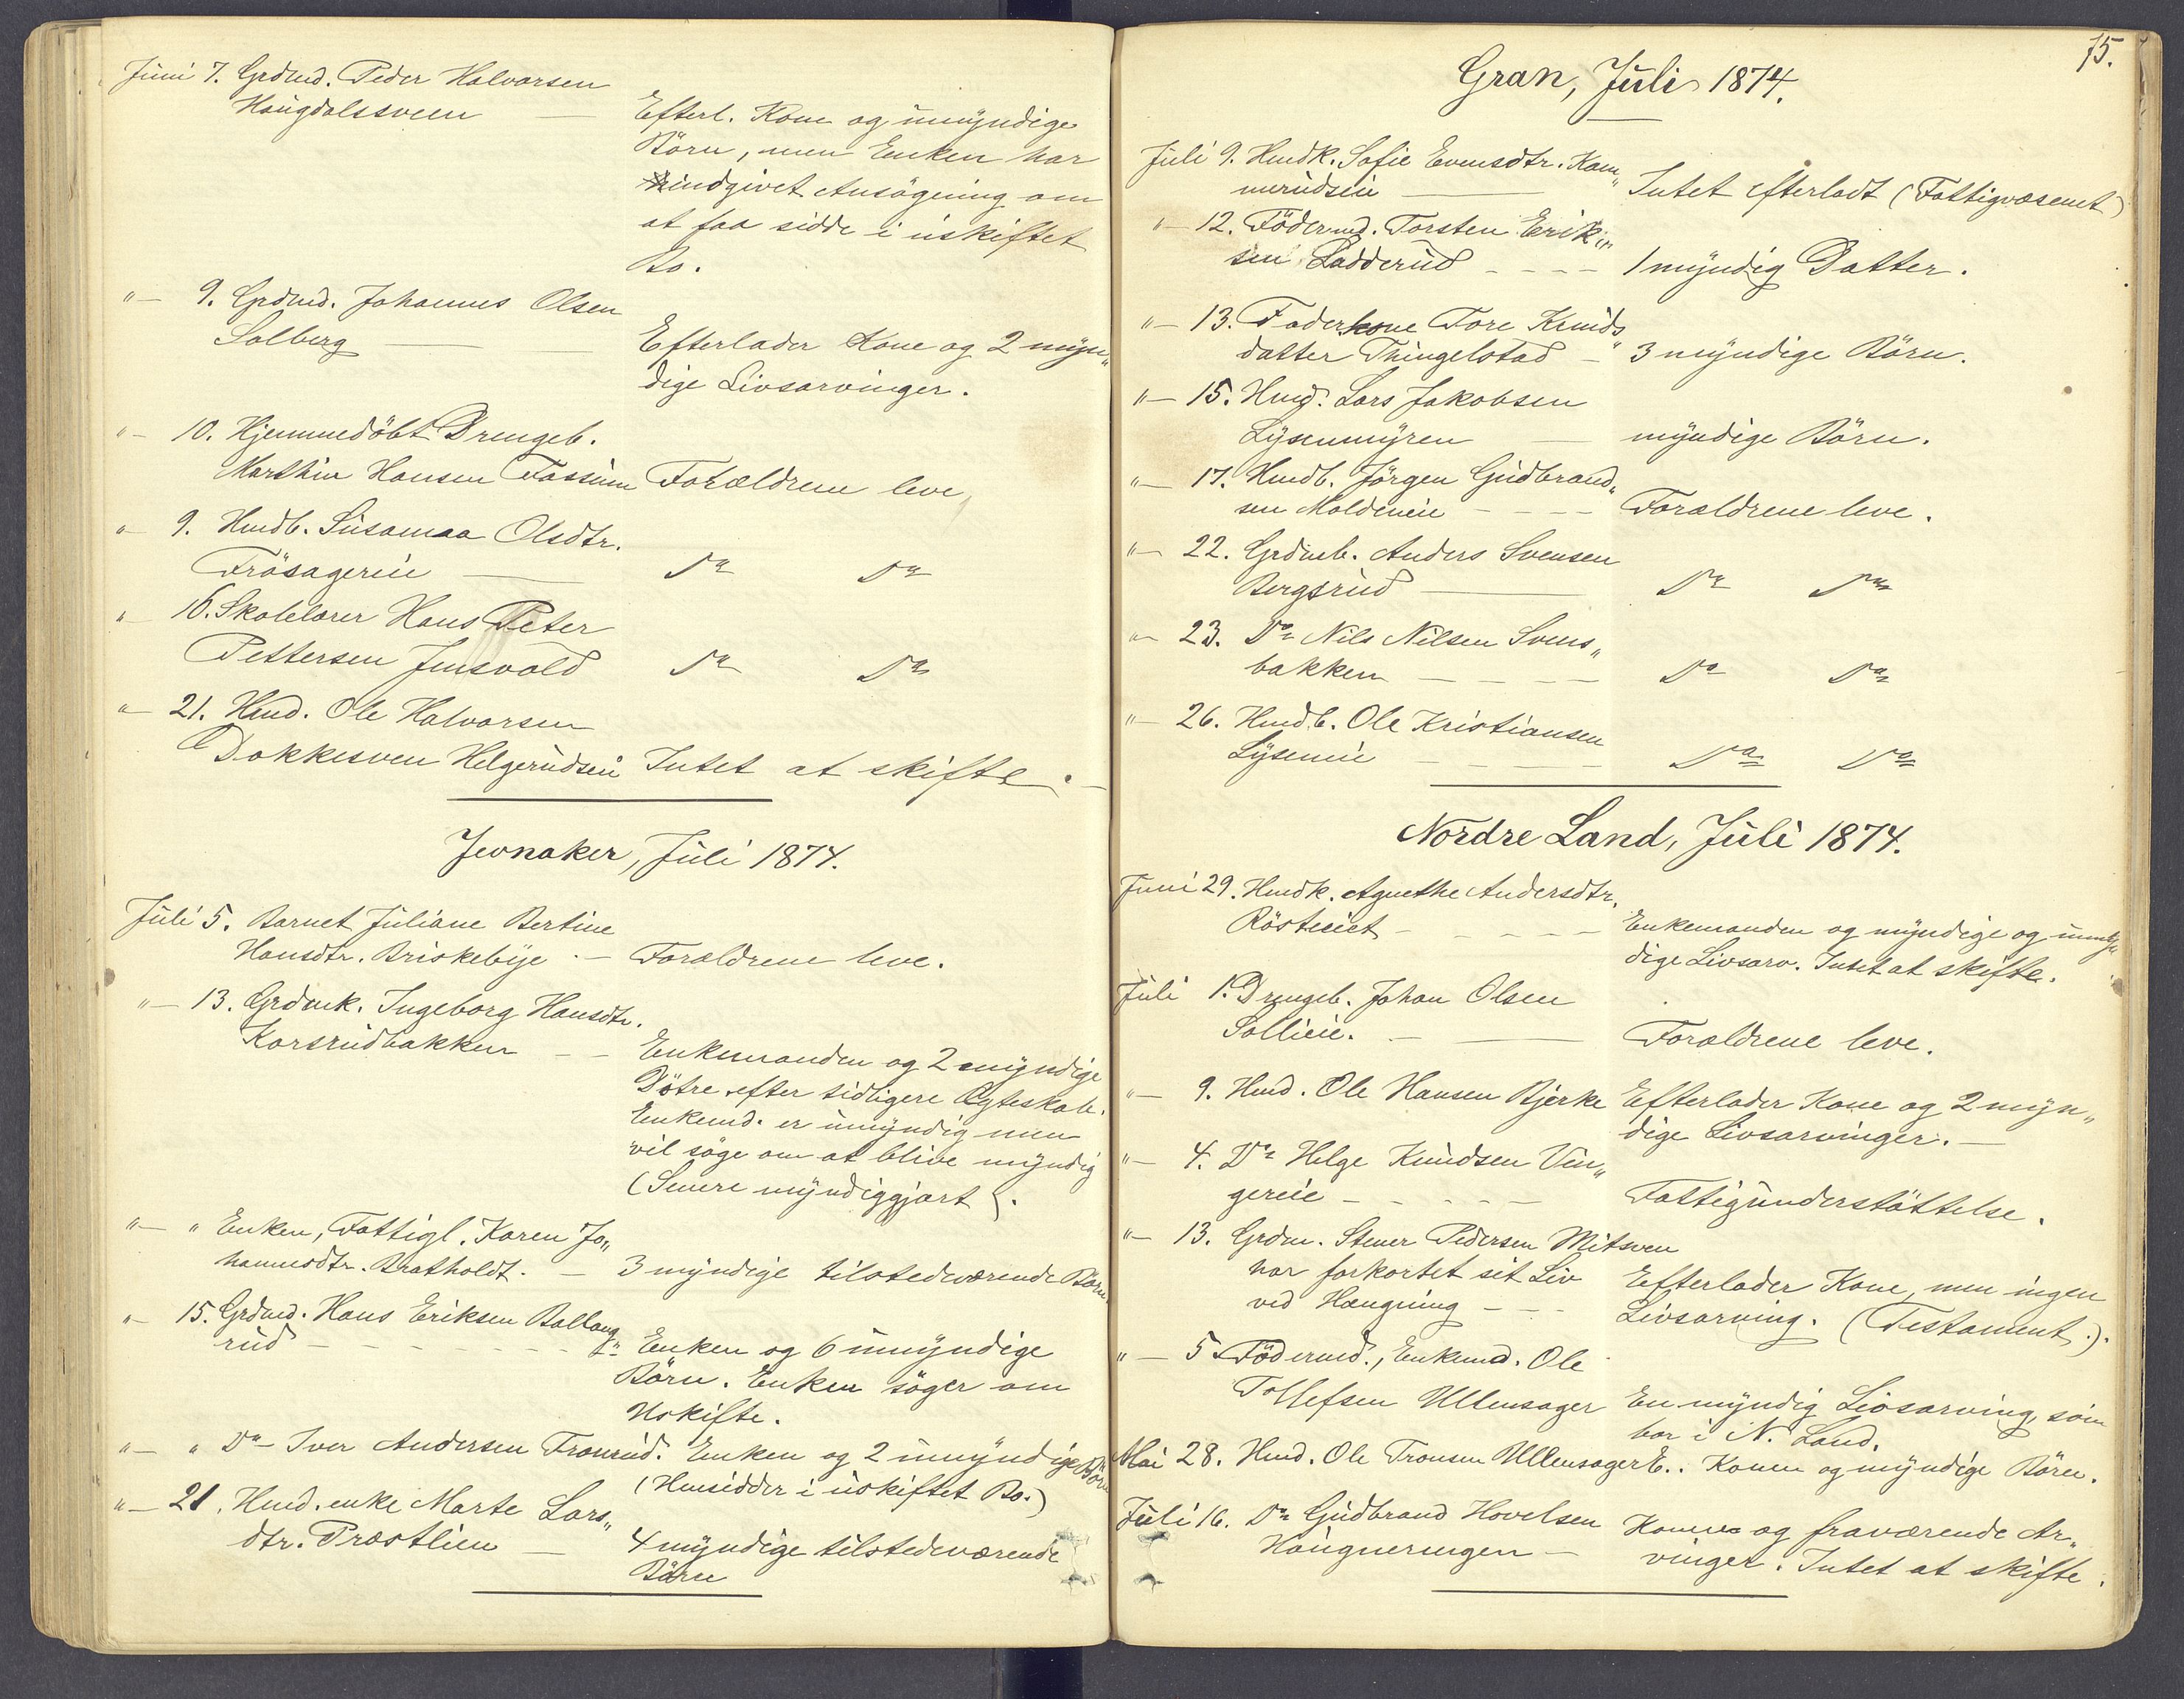 Juni 7. Grdmd. Peder Halvorsen
Haugdalssveen — Efterl. Kone og umyndige
Börn, men Enken har
indgivet Ansögning om
at faa sidde i uskiftet
Bo.
"— 9. Grdmd. Johannes Olsen
Solberg — Efterlader Kone og 2 myn„
dige Livsarvinger.
"— 10. Hjemmedöbt Drengeb.
Marthin Hansen Fossum Forældrene leve,
"— 9. Hmdb. Susanna Olsdtr.
Frösagereie — Do Do
"— 16. Skolelærer Hans Peter
Pettersen Jensvold Do Do
"— 21. Hmd. Ole Halvorsen
Dokkesveen Helgerudseie Intet at skifte. —
Jevnaker, Juli 1874.
Juli 5. Barnet Juliane Bertine
Hansdtr. Briskebye. — Forældrene leve.
"— 13. Grdmk. Ingeborg Hansdtr.
Korsrudbakken — — Enkemanden og 2 myndige
Dötre efter tidligere Ægteskab.
Enkemd. er umyndig men
vil söge om at blive myndig
(Senere myndiggjort).
"— " Enken, Fattigl. Karen Jo„
hannesdtr. Bratholdt. — 3 myndige tilstedeværende Börn.
"— 15. Grdmd. Hans Eriksen Ballang„
rud — — — Enken og 6 umyndige
Börn. Enken söger om
Uskifte.
"— " Do Iver Andersen Framrud. Enken og 2 umyndige Börn
(Hensidder i uskiftet Bo.)
"— 21. Hmd.enke Marte Lars„
dtr. Præstlien — 4 myndige tilstedeværende
Börn
75.
Gran, Juli 1874.
Juli 9. Hmdk. Sofie Evensdtr. Ram„
merudseie — Intet efterladt (Fattigvæsenet)
"— 12. Födermd. Torsten Erik„
sen Ladderud — — — 1 myndig Datter.
"— 13. Foderkone Tore Knuds„
datter Thingelstad — 3 myndige Börn.
"— 15. Hmd. Lars Jakobsen
Lysenmyren — myndige Börn.
"— 17. Hmdb. Jörgen Gudbrand„
sen Moldeneie — — — Forældrene leve.
"— 22. Grdmb. Anders Svensen
Bergsrud — Do Do
"— 23. Do Nils Nilsen Svens„
bakken — — — Do Do
"— 26. Hmdb. Ole Kristiansen
Lyseneie — — — Do Do
Nordre Land, Juli 1874.
Juni 29. Hmdk. Agnethe Andersdtr.
Rösteeiet — — — Enkemanden og myndige og umyn„
dige Livsarv. Intet at skifte.
Juli 1. Drengeb. Johan Olsen
Sollieie. — — Forældrene leve.
"— 9. Hmd. Ole Hansen Bjerke Efterlader Kone og 2 myn„
dige Livsarvinger. —
"— 4. Do Helge Knudsen Vin„
gereie — — — Fattigunderstöttelse.
"— 13. Grdm. Stener Pedersen Mitsveen
har forkortet sit Liv Efterlader Kone, men ingen
ved Hængning — — Livsarving. (Testament.).
"— 5. Födermd., Enkemd. Ole
Tollefsen Ullensager En myndig Livsarving, som
bor i N. Land.
Mai 28. Hmd. Ole Tronsen Ullensager E.. Konen og myndige Börn.
Juli 16. Do Gudbrand Hovelsen Konen og fraværende Ar„
Haugneringen — vinger. Intet at skifte.